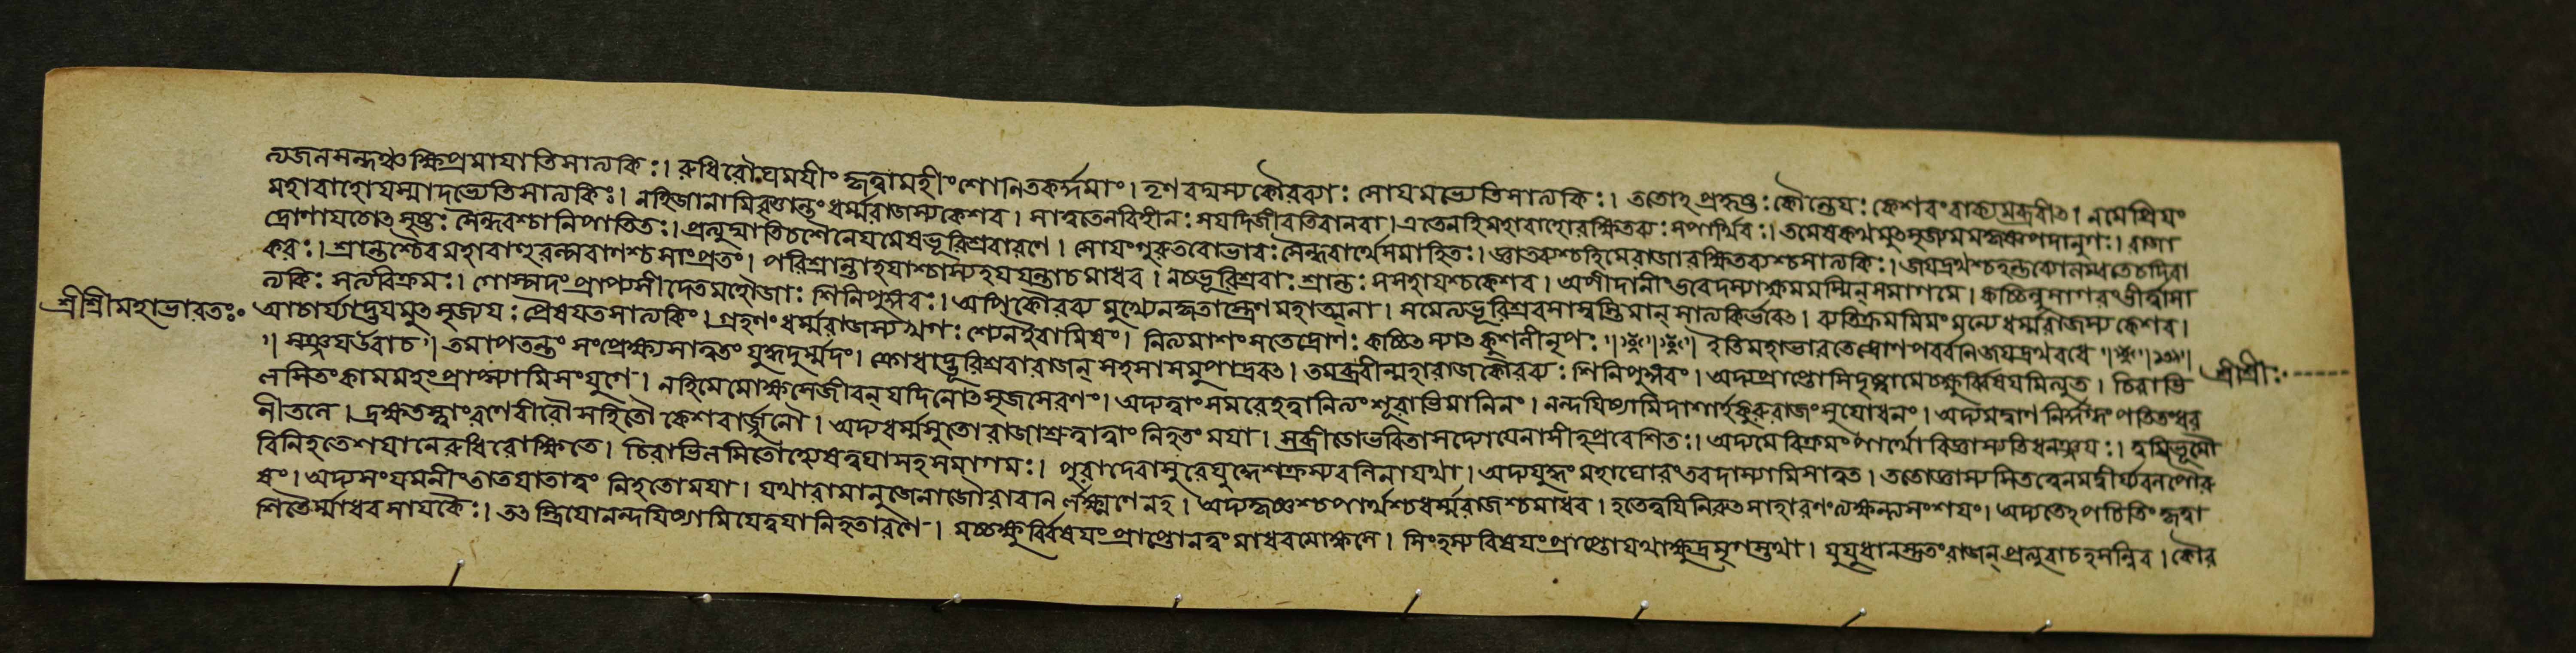 ত্যজনমন্দঞ্চক্ষিপ্রমাযাতিসাত্যকিঃ। রুধিরৌঘমযীং কৃত্বামহীংশোনিতকর্দ্দমাং। তৃণবদ্যস্যকৌরব্যাঃ সোযমভ্যেতিসাত্যকিঃ। ততোঽপ্রহৃষ্টঃ কৌন্তেযঃ কেশবংবাক্যমব্রবীৎ। নমেপ্রিযং
মহাবাহোযস্মাদভ্যেতিসাত্যকিঃ। নহিজানামিবৃত্তান্তং ধর্ম্মরাজস্যকেশব। সাত্বতেনবিহীনঃ সযদিজীবতিবানবা। এতেনহিমহাবাহোরক্ষিতব্যঃ সপার্থিবঃ। তমেষকথমুৎসৃজ্যমমকৃষ্ণপদানুগঃ। রাজা
দ্রোণাযচোৎসৃষ্টঃ সৈন্ধবশ্চানিপাতিতঃ। প্রত্যুদ্যাতিচশৈনেযমেষভূরিশ্রবারণে। সোযংগুরুতরোভারঃ সৈন্ধবার্থেসমাহিতঃ। জ্ঞাতব্যশ্চহিমেরাজারক্ষিতব্যশ্চসাত্যকিঃ। জযদ্রথশ্চহন্তব্যোলম্বতেচদিবা
করঃ। শ্রান্তশ্চৈবমহাবাহুরল্পবাণশ্চসাংপ্রতং। পরিশ্রান্তাহযাশ্চাস্যহযযন্তাচমাধব। নচভূরিশ্রবাঃ শ্রান্তঃ সসহাযশ্চকেশব। অপীদানীংভবেদস্যক্ষেমমস্মিন্সমাগমে। কচ্চিন্নসাগরংতীর্ত্বাসা
ত্যকিঃ সত্যবিক্রমঃ। গোস্পদংপ্রাপ্যসীদেতমহৌজাঃ শিনিপুঙ্গবঃ। অপিকৌরব্যমুখ্যেনকৃতাস্ত্রেণমহাত্মনা। সমেত্যভূরিশ্রবসাস্বস্তিমান্ সাত্যকির্ভবেৎ। ব্যতিক্রমমিমংমন্যেধর্ম্মরাজস্যকেশব।
শ্রীশ্রীমহাভারতঃ০ আচার্য্যাদ্ভযমুৎসৃজ্যযঃ প্রৈষযতসাত্যকিং। গ্রহণংধর্ম্মরাজস্যখগঃ শ্যেনইবামিষং। নিত্যমাশংসতেদ্রোণঃ কচ্চিৎস্যাৎকুশলীনৃপঃ ॥ ইতিমহাভারতেদ্রোণপর্ব্বনিজযদ্রথবধে ॥
॥ সঞ্জযউবাচ॥ তমাপতন্তং সংপ্রেক্ষ্যসাত্বতং যুদ্ধদুর্ম্মদং। ক্রোধাদ্ভূরিশ্রবারাজন্ সহসাসমুপাদ্রবৎ। তমব্রবীন্মহারাজকৌরব্যঃ শিনিপুঙ্গবং। অদ্যপ্রাপ্তোসিদৃষ্ট্যামেচক্ষুর্ব্বিষযমিত্যুত। চিরাভি শ্রীশ্রীঃ
লসিতংকামমহংপ্রাপ্স্যামিসংযুগে। নহিমেমোক্ষসেজীবন্ যদিনোৎসৃজসেরণং। অদ্যত্বাংসমরেহত্বানিত্যংশূরাভিমানিনং। নন্দযিষ্যামিদাশার্হকুরুরাজংসুযোধনং। অদ্যমদ্বাণনির্দগ্ধংপতিতংধর
নীতলে। দ্রক্ষতস্ত্বাংরণেবীরৌসহিতৌকেশবার্জ্জুনৌ। অদ্যধর্ম্মসুতোরাজাশ্রুত্বাত্বাংনিহতংমযা। সব্রীডোভবিতাসদ্যোযেনাসীহপ্রবেশিতঃ। অদ্যমেবিক্রমংপার্থোবিজ্ঞাস্যতিধনঞ্জযঃ। ত্বযিভূমৌ
বিনিহতেশযানেরুধিরোক্ষিতে। চিরাভিলসিতোহ্যেষত্বযাসহসমাগমঃ। পুরাদেবাসুরেযুদ্ধেশক্রস্যবলিনাযথা। অদ্যযুদ্ধংমহাঘোরংতবদাস্যামিসাত্বত। ততোজ্ঞাস্যসিতত্ত্বেনমদ্বীর্য্যবলপৌরু
ষং। অদ্যসংযমনীংতাতযাতাত্বংনিহতোমযা। যথারামানুজেনাজৌরাবানর্লক্ষ্মণেনহ। অদ্যকৃষ্ণশ্চপার্থশ্চধর্ম্মরাজশ্চমাধব। হতেত্বযিনিরুৎসাহারণংত্যক্ষন্ত্যসংশযং। অদ্যতেঽপচিতিংকৃত্বা
শিতৈর্ম্মাধবসাযকৈঃ। তৎস্ত্রিযোনন্দযিষ্যামিযেত্বযানিহতারণে। মচ্চক্ষুর্ব্বিষযংপ্রাপ্তোনত্বংমাধবমোক্ষসে। সিংহস্যবিষযংপ্রাপ্তোযথাক্ষুদ্রমৃগস্তথা। যুযুধানস্তুতংরাজন্ প্রত্যুবাচহসন্নিব। কৌর